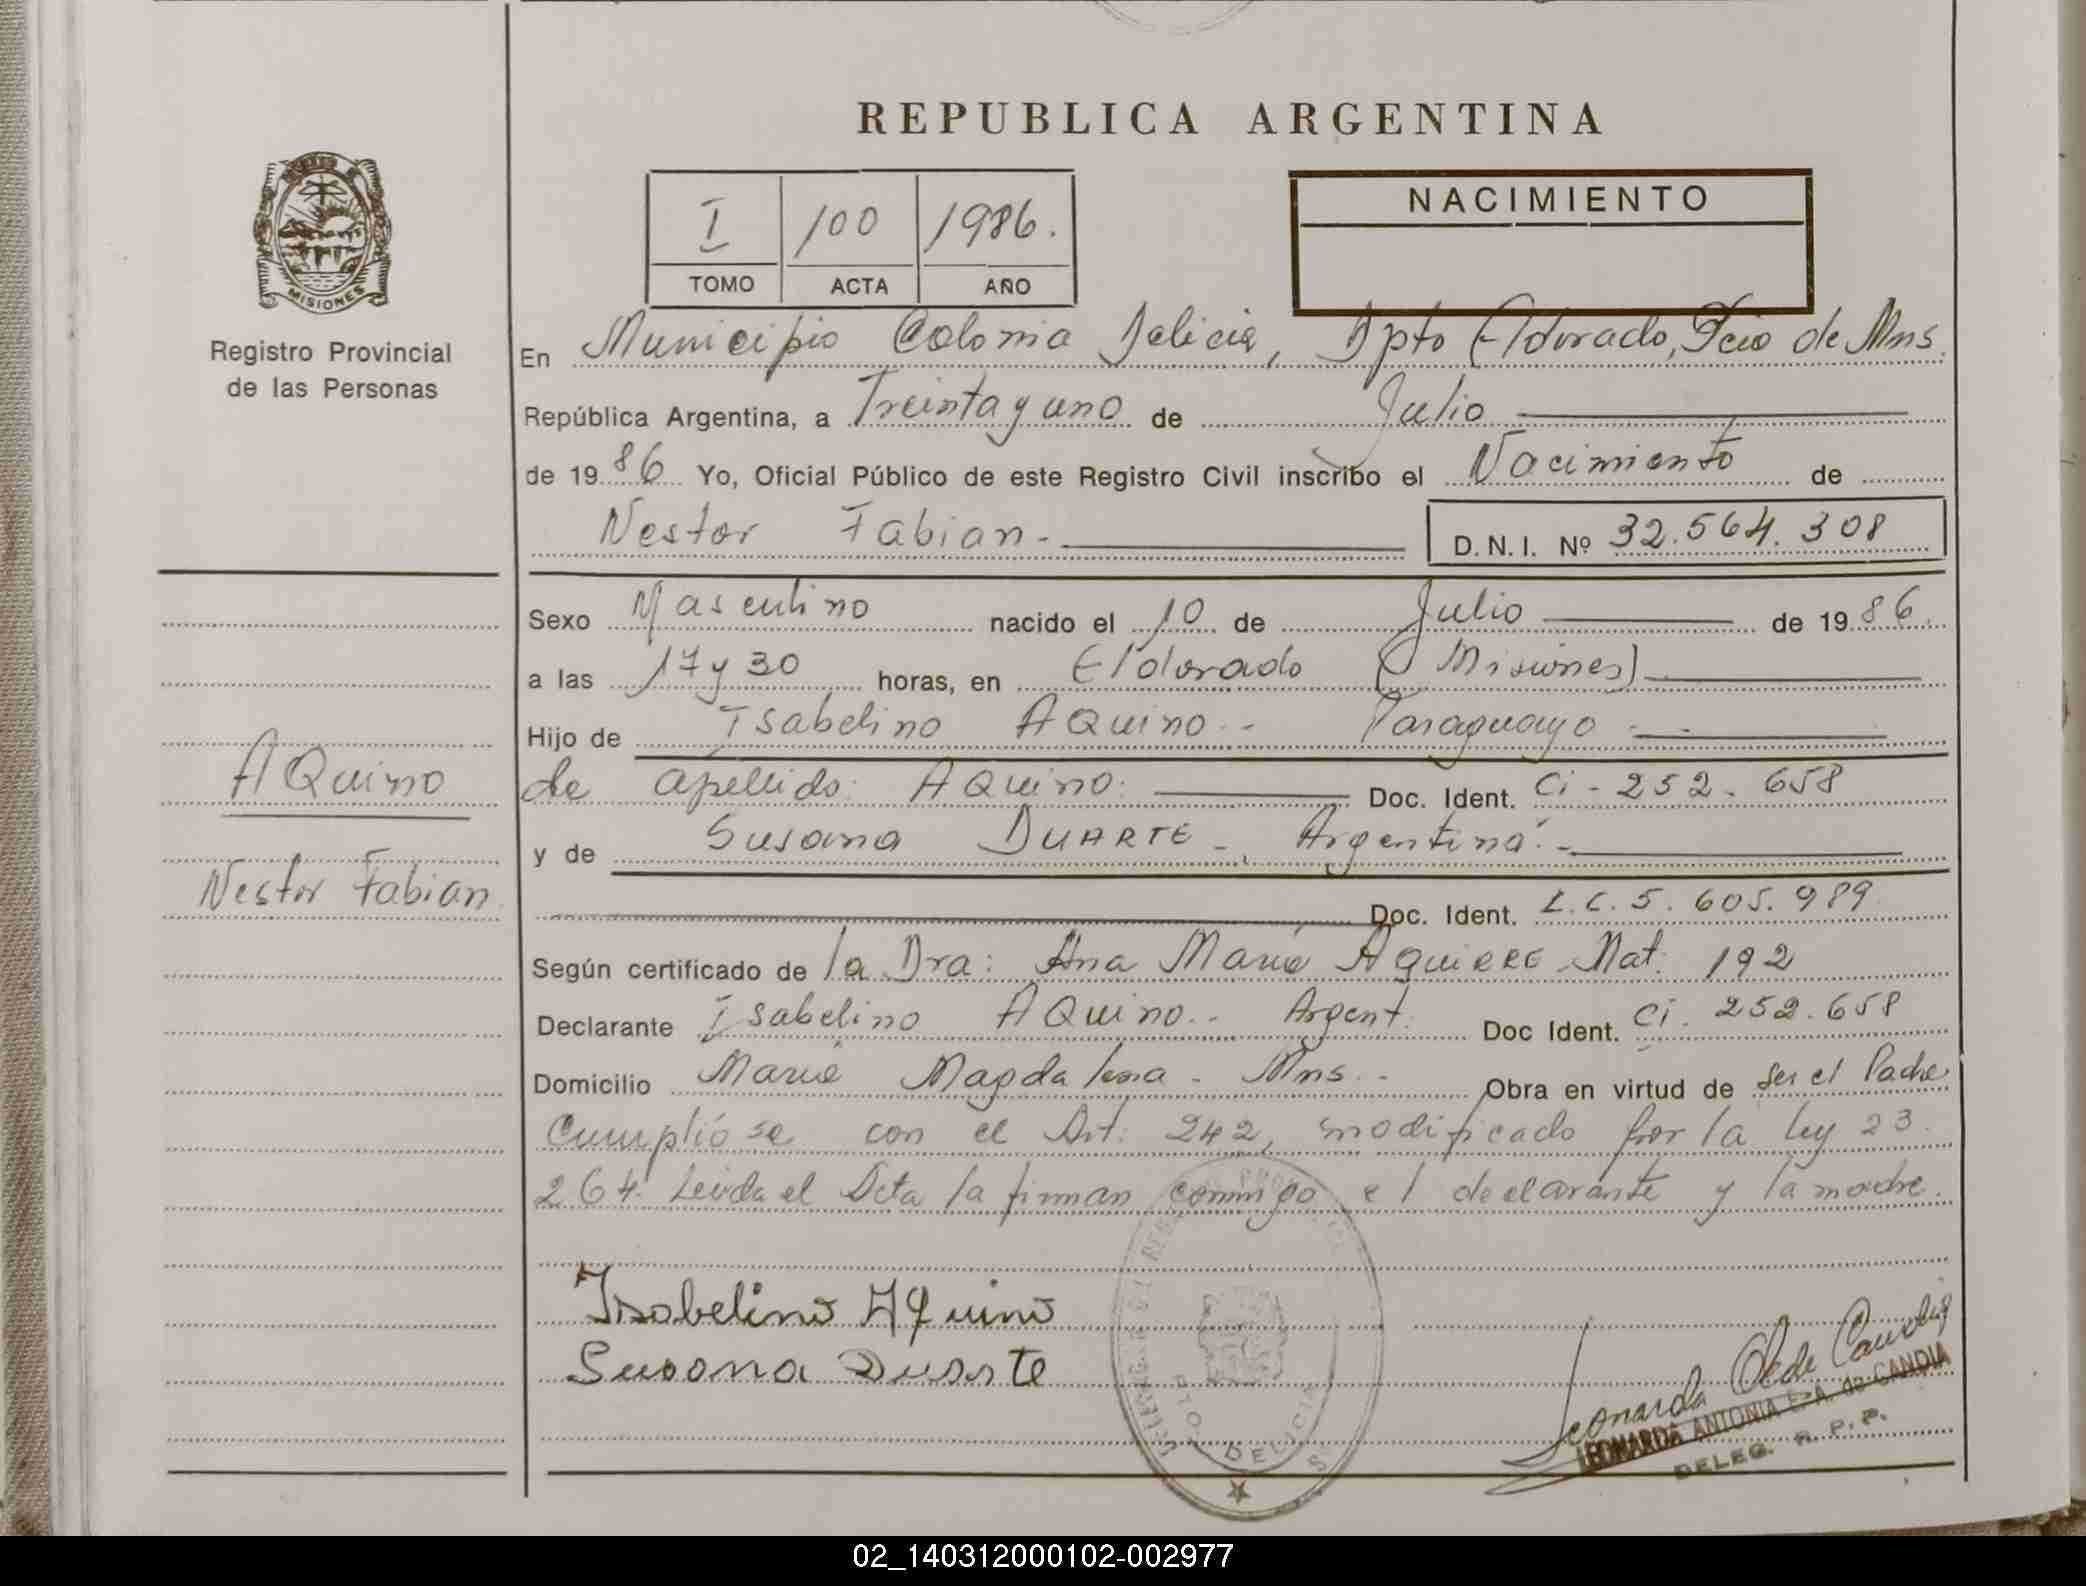 REPUBLICA ARGENTINA
I 100 1986.
TOMO ACTA AÑO
NACIMIENTO
MISIONES
Registro Provincial
de las Personas
En Municipio Colonia Delicia, Dpto Eldorado, Pcia de Mns.
República Argentina, a Treinta y uno de Julio
de 1986 Yo, Oficial Público de este Registro Civil inscribo el Nacimiento de
Nestor Fabian.- D.N.I. Nº 32.564.308
Sexo Masculino nacido el 10 de Julio de 1986.
a las 17 y 30 horas, en Eldorado (Misiones)
Hijo de Isabelino AQuino.- Paraguayo.-
de apellido: AQuino: Doc. Ident. Ci - 252. 658
y de Susana DUARTE -, Argentina.-
Doc. Ident. L.C. 5. 605. 989
AQuino
Nestor Fabian
Según certificado de la Dra: Ana Maria Aguirre Mat: 192
Declarante Isabelino AQuino.- Argent. Doc Ident. Ci. 252.658
Domicilio Maria Magdalena - Mns.- Obra en virtud de ser el Padre
Cumpliose con el Art: 242, modificado por la ley 23.
264. Leida el Acta la firman conmigo el declarante y la madre.
Isabelino Aquino
Susana Duarte
Leonarda de Candia
LEONARDA ANTONIA E. A. de CANDIA
DELEG. R. P. P.
DELICIA
02_140312000102-002977